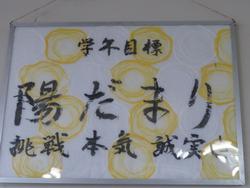 学年目標
陽だまり
挑戦 本気 誠実